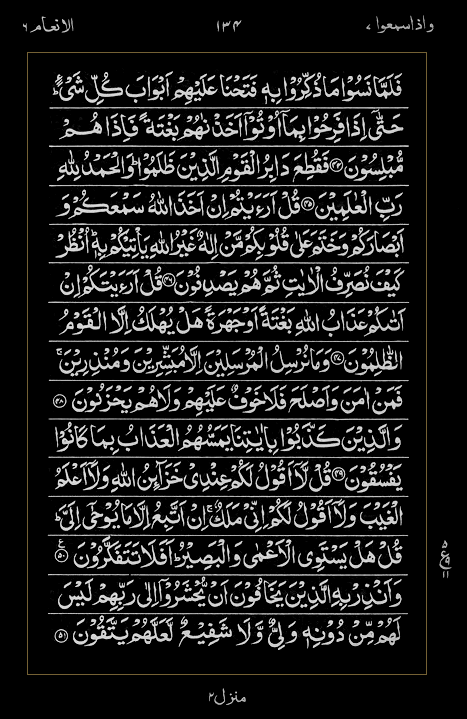 واذاسمعوا ٧ ١٣٤ الانعام ٦
فَلَمَّا نَسُوْا مَا ذُكِّرُوْا بِهٖ فَتَحْنَا عَلَيْهِمْ اَبْوَابَ كُلِّ شَیْءٍ ؕ
حَتّٰۤی اِذَا فَرِحُوْا بِمَاۤ اُوْتُوْۤا اَخَذْنٰهُمْ بَغْتَةً فَاِذَا هُمْ
مُّبْلِسُوْنَ ﴿۴۴﴾ فَقُطِعَ دَابِرُ الْقَوْمِ الَّذِيْنَ ظَلَمُوْا ؕ وَالْحَمْدُ لِلّٰهِ
رَبِّ الْعٰلَمِيْنَ ﴿۴۵﴾ قُلْ اَرَءَيْتُمْ اِنْ اَخَذَ اللّٰهُ سَمْعَكُمْ وَ
اَبْصَارَكُمْ وَخَتَمَ عَلٰی قُلُوْبِكُمْ مَّنْ اِلٰهٌ غَيْرُ اللّٰهِ يَاْتِيْكُمْ بِهٖ ؕ اُنْظُرْ
كَيْفَ نُصَرِّفُ الْاٰيٰتِ ثُمَّ هُمْ يَصْدِفُوْنَ ﴿۴۶﴾ قُلْ اَرَءَيْتَكُمْ اِنْ
اَتٰىكُمْ عَذَابُ اللّٰهِ بَغْتَةً اَوْ جَهْرَةً هَلْ يُهْلَكُ اِلَّا الْقَوْمُ
الظّٰلِمُوْنَ ﴿۴۷﴾ وَمَا نُرْسِلُ الْمُرْسَلِيْنَ اِلَّا مُبَشِّرِيْنَ وَمُنْذِرِيْنَ ۚ
فَمَنْ اٰمَنَ وَاَصْلَحَ فَلَا خَوْفٌ عَلَيْهِمْ وَلَا هُمْ يَحْزَنُوْنَ ﴿۴۸﴾
وَالَّذِيْنَ كَذَّبُوْا بِاٰيٰتِنَا يَمَسُّهُمُ الْعَذَابُ بِمَا كَانُوْا
يَفْسُقُوْنَ ﴿۴۹﴾ قُلْ لَّاۤ اَقُوْلُ لَكُمْ عِنْدِیْ خَزَآئِنُ اللّٰهِ وَلَاۤ اَعْلَمُ
الْغَيْبَ وَلَاۤ اَقُوْلُ لَكُمْ اِنِّیْ مَلَكٌ ۚ اِنْ اَتَّبِعُ اِلَّا مَا يُوْحٰۤی اِلَیَّ ؕ
قُلْ هَلْ يَسْتَوِی الْاَعْمٰی وَالْبَصِيْرُ ؕ اَفَلَا تَتَفَكَّرُوْنَ ﴿۵۰﴾ ع
وَاَنْذِرْ بِهِ الَّذِيْنَ يَخَافُوْنَ اَنْ يُّحْشَرُوْۤا اِلٰی رَبِّهِمْ لَيْسَ
لَهُمْ مِّنْ دُوْنِهٖ وَلِیٌّ وَّلَا شَفِيْعٌ لَّعَلَّهُمْ يَتَّقُوْنَ ﴿۵۱﴾
۵
ع ۹
۱۱
منزل ٢